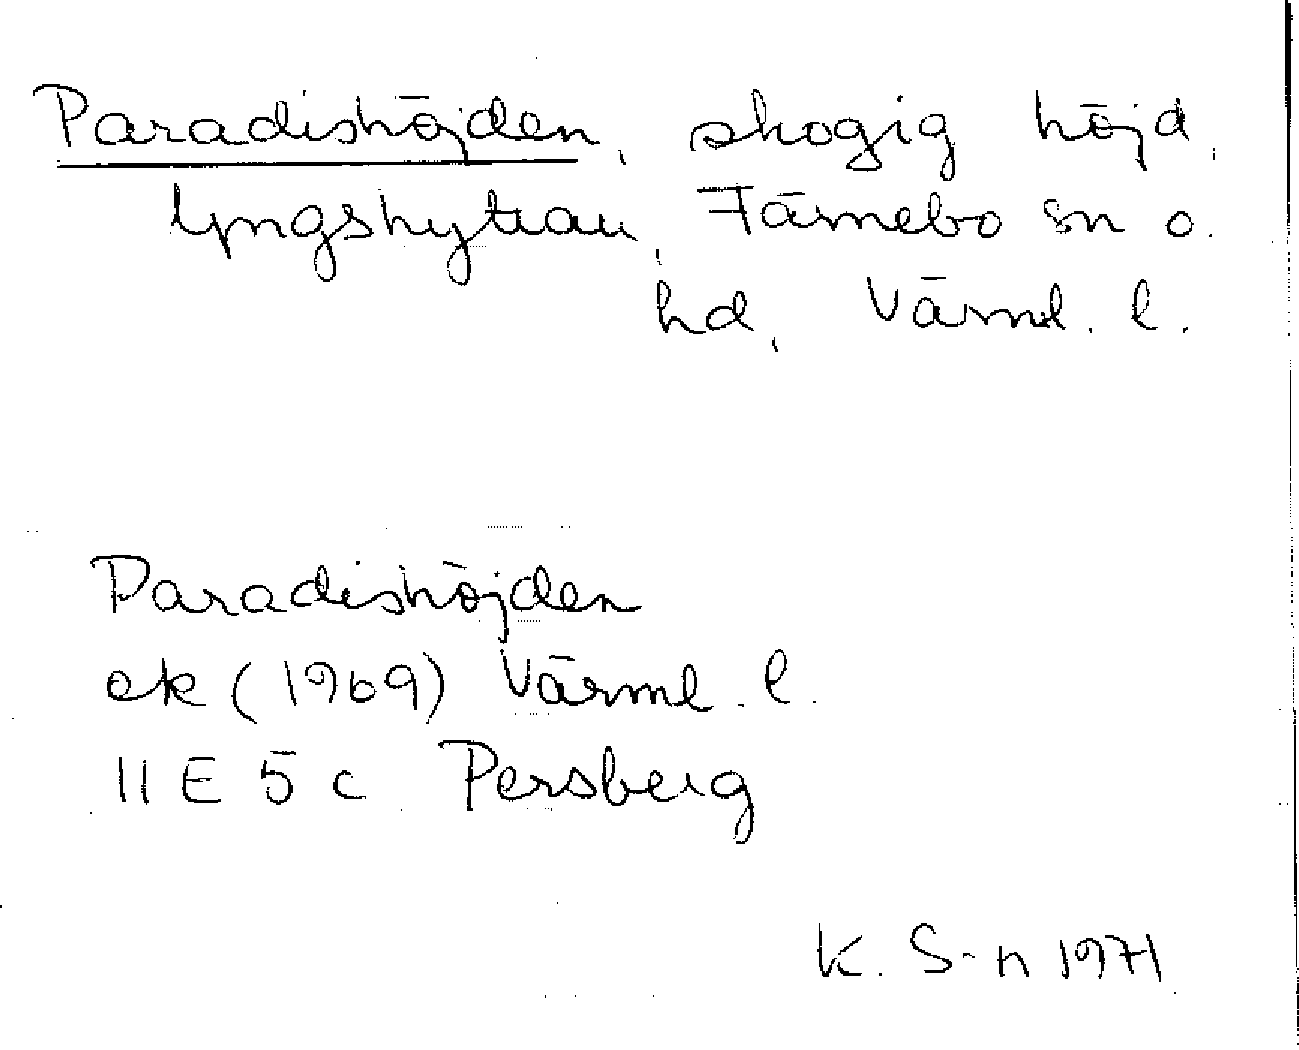 Paradishöjden, skogig höjd,
Yngshyttan, Färnebo sn o.
hd, Värml. l.
Paradishöjden
ek (1969) Värml. l.
11 E 5 c Persberg
K. S-n 1971